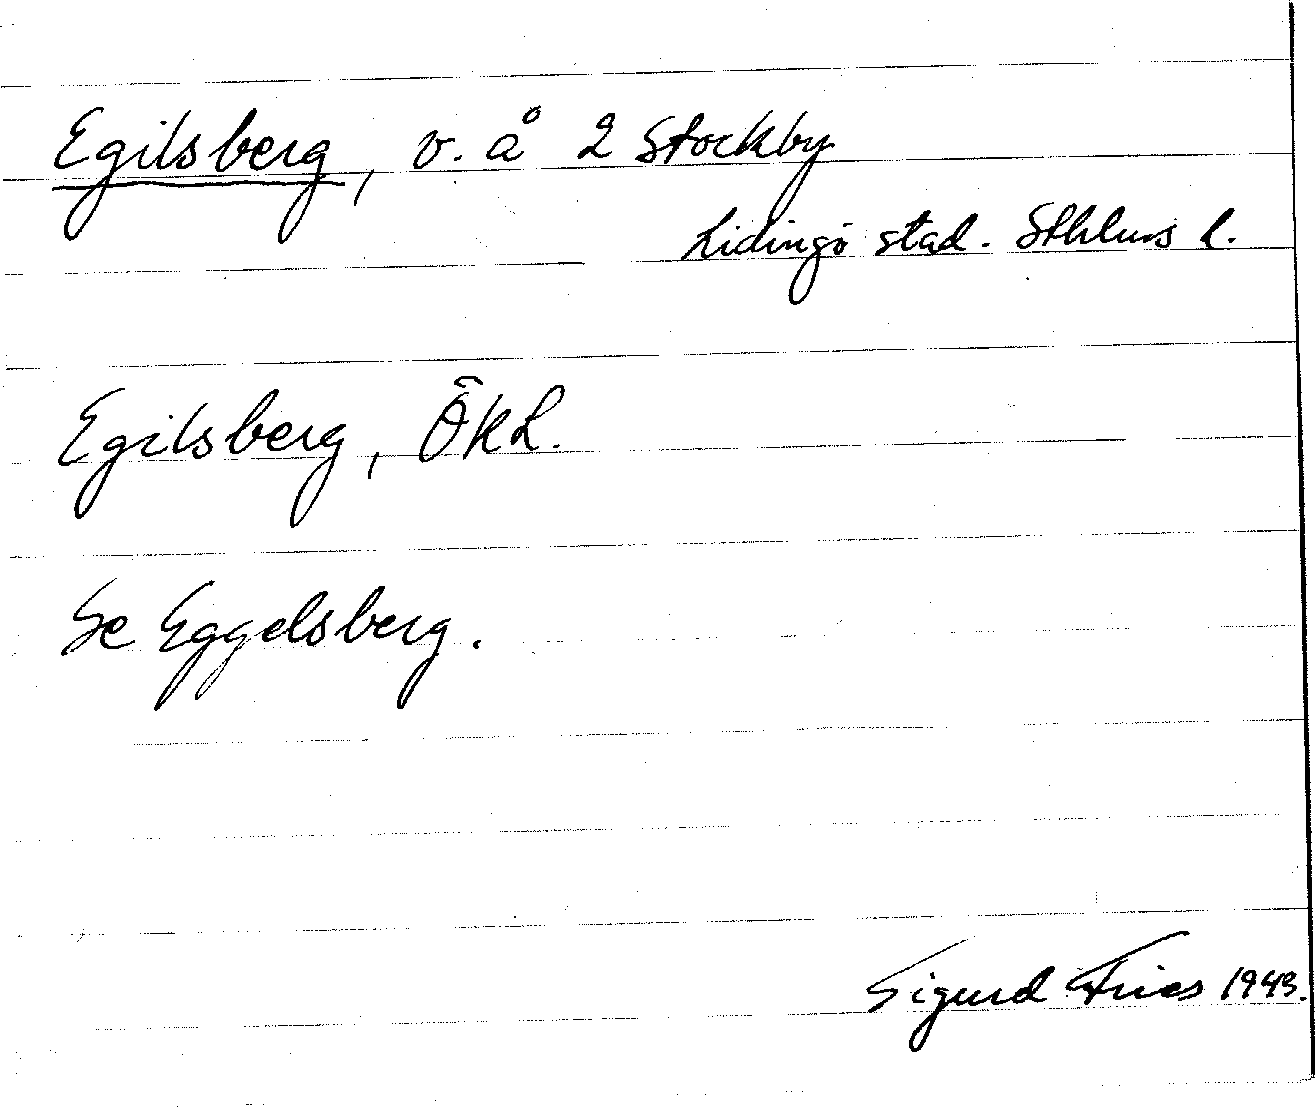 Egilsberg, v. å 2 Stockby
Lidingö stad. Sthlms l.
Egilsberg, ÖKL.
Se Eggelsberg.
Sigurd Fries 1943.